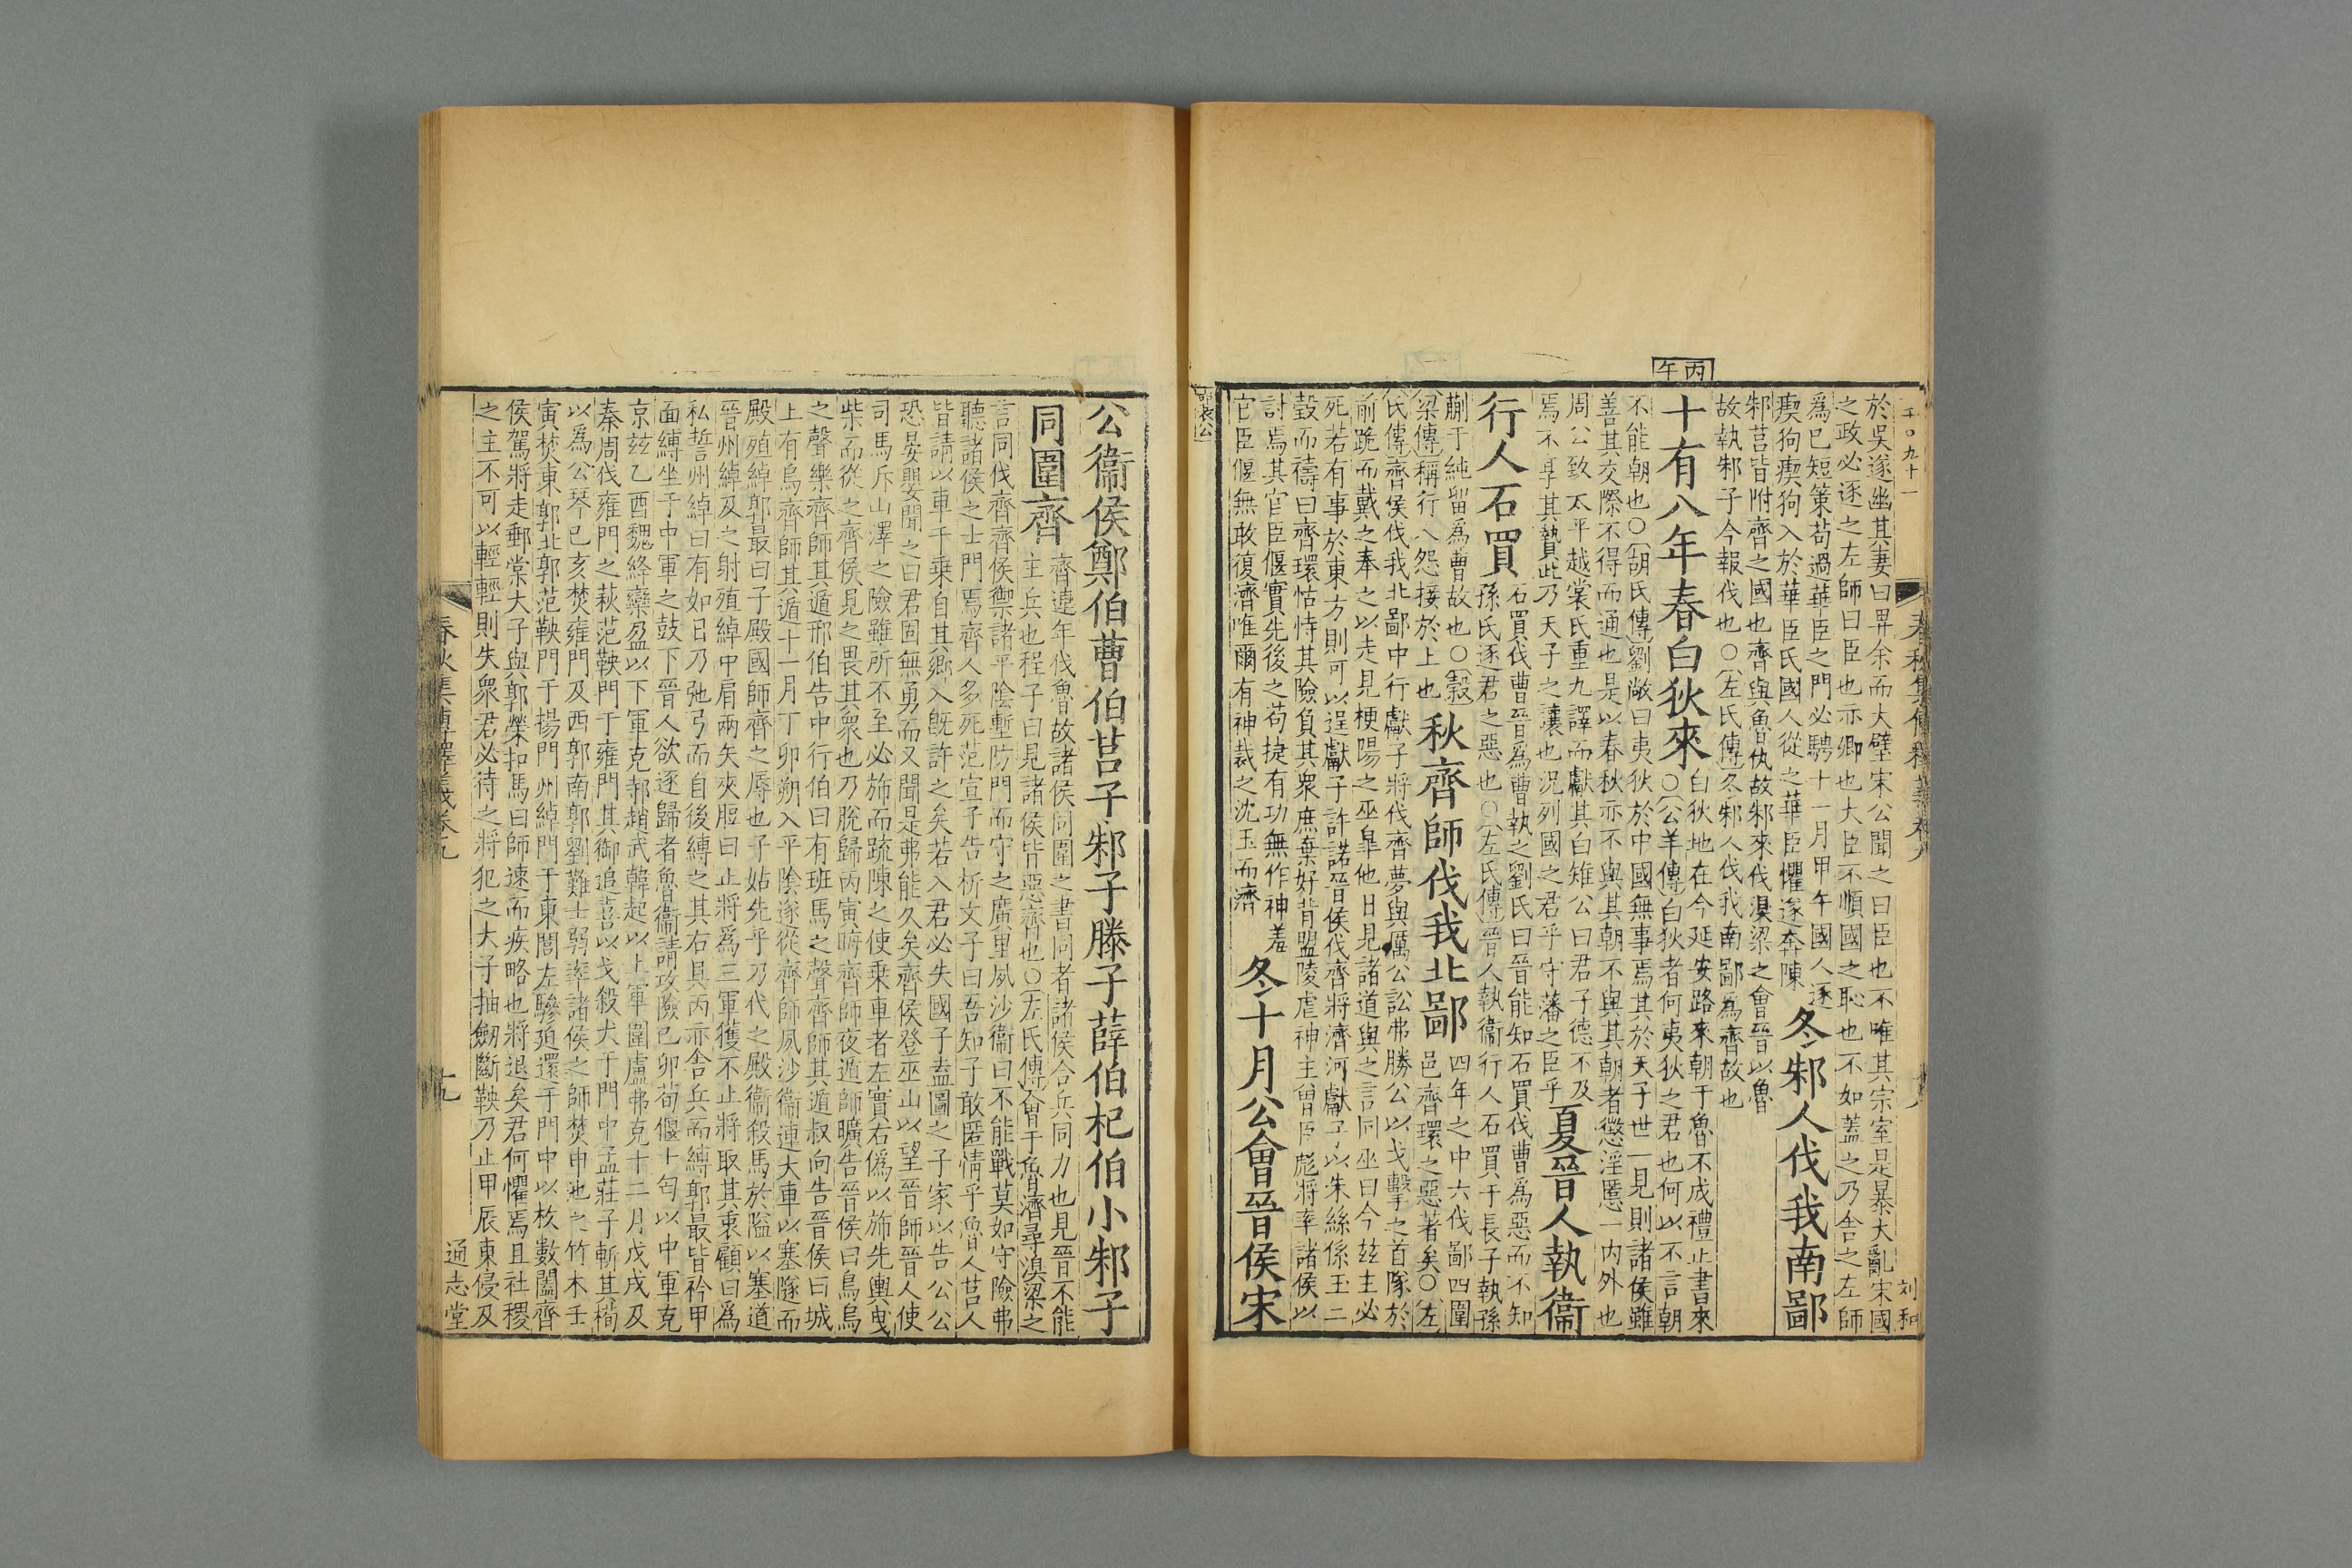 千〇九十一
春秋集傳釋義卷九
十八
刘和
丙午
於吳遂幽其妻曰畀余而大璧宋公聞之曰臣也不唯其宗室是暴大亂宋國
之政必逐之左師曰臣也亦卿也大臣不順國之恥也不如蓋之乃舍之左師
爲已短策苟過華臣之門必騁十一月甲午國人逐
瘈狗瘈狗入於華臣氏國人從之華臣懼遂奔陳
冬邾人伐我南鄙
邾莒皆附齊之國也齊與魯仇故邾來伐湨梁之會晉以魯
故執邾子今報伐也〇左氏傳冬邾人伐我南鄙爲齊故也
十有八年春白狄來
白狄地在今延安路來朝于魯不成禮止書來
〇公羊傳白狄者何夷狄之君也何以不言朝
不能朝也〇胡氏傳劉敞曰夷狄於中國無事焉其於天子世一見則諸侯雖
善其交際不得而通也是以春秋亦不與其朝不與其朝者懲淫慝一內外也
周公致太平越裳氏重九譯而獻其白雉公曰君子德不及
焉不享其贄此乃天子之讓也況列國之君乎守藩之臣乎
夏晉人執衞
行人石買
石買伐曹晉爲曹執之劉氏曰晉能知石買伐曹爲惡而不知
孫氏逐君之惡也〇左氏傳晉人執衞行人石買于長子執孫
蒯于純留爲曹故也〇穀
梁傳稱行人怨接於上也
秋齊師伐我北鄙
四年之中六伐鄙四圍
邑齊環之惡著矣〇左
氏傳齊侯伐我北鄙中行獻子將伐齊夢與厲公訟弗勝公以戈擊之首隊於
前跪而戴之奉之以走見梗陽之巫臯他日見諸道與之言同巫曰今茲主必
死若有事於東方則可以逞獻子許諾晉侯伐齊將濟河獻子以朱絲係玉二
瑴而禱曰齊環怙恃其險負其衆庶棄好背盟陵虐神主曾臣彪將率諸侯以
討焉其官臣偃實先後之苟捷有功無作神羞
官臣偃無敢復濟唯爾有神裁之沈玉而濟
冬十月公會晉侯宋
公衞侯鄭伯曹伯莒子邾子滕子薛伯杞伯小邾子
同圍齊
齊連年伐魯故諸侯同圍之書同者諸侯合兵同力也見晉不能
主兵也程子曰見諸侯皆惡齊也〇左氏傳會于魯濟尋湨梁之
言同伐齊齊侯禦諸平陰塹防門而守之廣里夙沙衞曰不能戰莫如守險弗
聽諸侯之士門焉齊人多死范宣子告析文子曰吾知子敢匿情乎魯人莒人
皆請以車千乘自其鄉入旣許之矣若入君必失國子盍圖之子家以告公公
恐晏嬰聞之曰君固無勇而又聞是弗能久矣齊侯登巫山以望晉師晉人使
司馬斥山澤之險雖所不至必斾而疏陳之使乘車者左實右僞以斾先輿曳
柴而從之齊侯見之畏其衆也乃脫歸丙寅晦齊師夜遁師曠告晉侯曰烏烏
之聲樂齊師其遁邢伯告中行伯曰有班馬之聲齊師其遁叔向告晉侯曰城
上有烏齊師其遁十一月丁卯朔入平陰遂從齊師夙沙衞連大車以塞隧而
殿殖綽郭最曰子殿國師齊之辱也子姑先乎乃代之殿衞殺馬於隘以塞道
晉州綽及之射殖綽中肩兩矢夾脰曰止將爲三軍獲不止將取其衷顧曰爲
私誓州綽曰有如日乃弛弓而自後縛之其右具丙亦舍兵而縛郭最皆衿甲
面縛坐于中軍之鼓下晉人欲逐歸者魯衞請攻險己卯荀偃士匄以中軍克
京茲乙酉魏絳欒盈以下軍克邿趙武韓起以上軍圍盧弗克十二月戊戌及
秦周伐雍門之萩范鞅門于雍門其御追喜以戈殺犬于門中孟莊子斬其橁
以爲公琴已亥焚雍門及西郭南郭劉難士弱率諸侯之師焚申池之竹木壬
寅焚東郭北郭范鞅門于揚門州綽門于東閭左驂迫還于門中以枚數闔齊
侯駕將走郵棠大子與郭榮扣馬曰師速而疾略也將退矣君何懼焉且社稷
之主不可以輕輕則失衆君必待之將犯之大子抽劒斷鞅乃止甲辰東侵及
春秋集傳釋義卷九
十九
通志堂